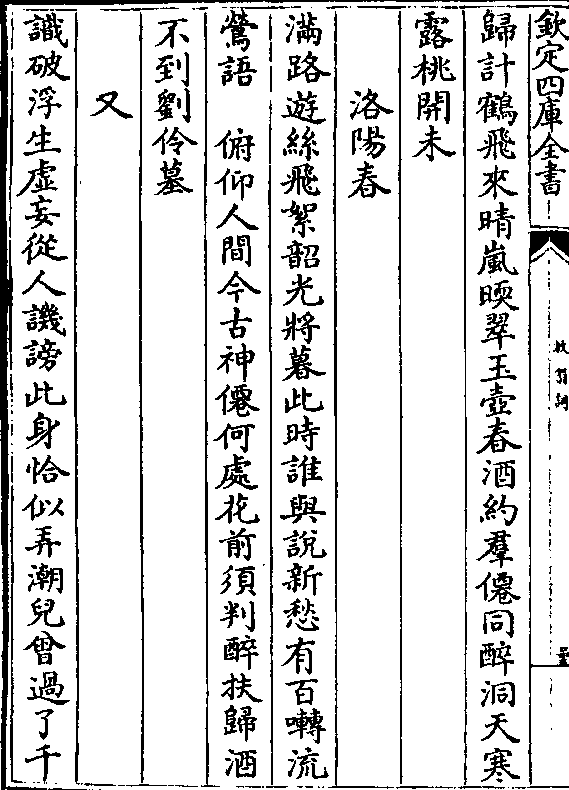 欽定四庫全書
歸計鶴飛來晴嵐暎翠玉壺春酒約羣僊同醉洞天寒
露桃開未
洛陽春
滿路遊絲飛絮韶光將暮此時誰與說新愁有百囀流
鶯語　俯仰人間今古神僊何處花前須判醉扶歸酒
不到劉伶墓
又
識破浮生虛妄從人譏謗此身恰似弄潮兒曾過了千